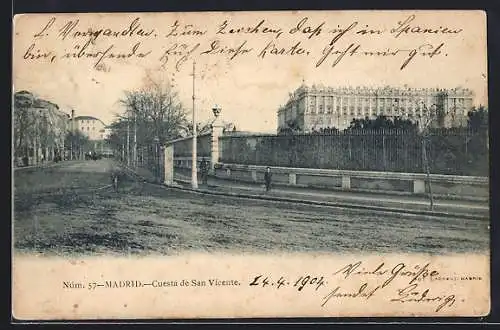 L. Vergandten. Zum Zeichen, daß ich in Spanien
bin, übersende für Diese Karte. Geht mir gut
Núm. 57—MADRID.—Cuesta de San Vicente. 24.4.1904 Viele Grüße
sendet Ludwig
MADRID